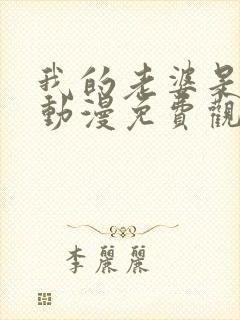 我的老婆是
動漫免費觀
李麗麗